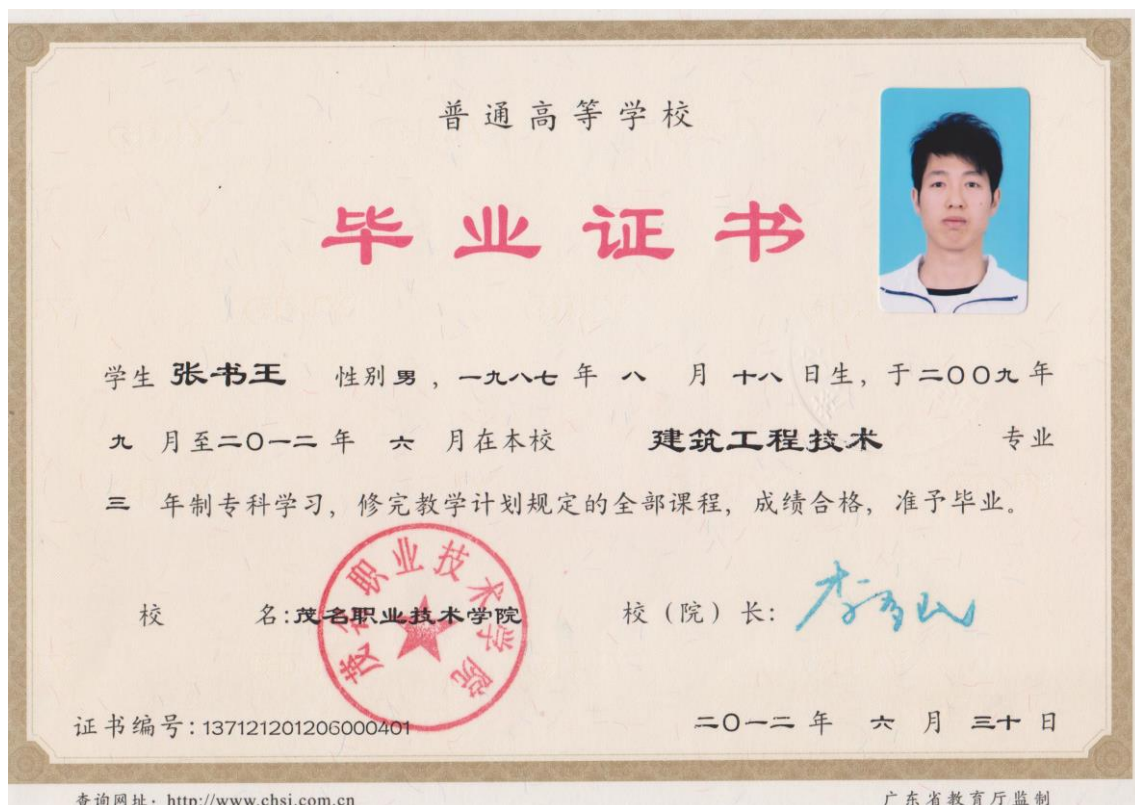 普通高等学校
毕业证书
学生 张书王 性别 男 ，一九八七 年 八 月 十八 日生，于二〇〇九 年
九 月至二〇一二 年 六 月在本校 建筑工程技术 专业
三 年制专科学习，修完教学计划规定的全部课程，成绩合格，准予毕业。
校 名:茂名职业技术学院 校（院）长:
茂名职业技术学院
证书编号：137121201206000401 二〇一二 年 六 月 三十 日
查询网址：http://www.chsi.com.cn 广东省教育厅监制